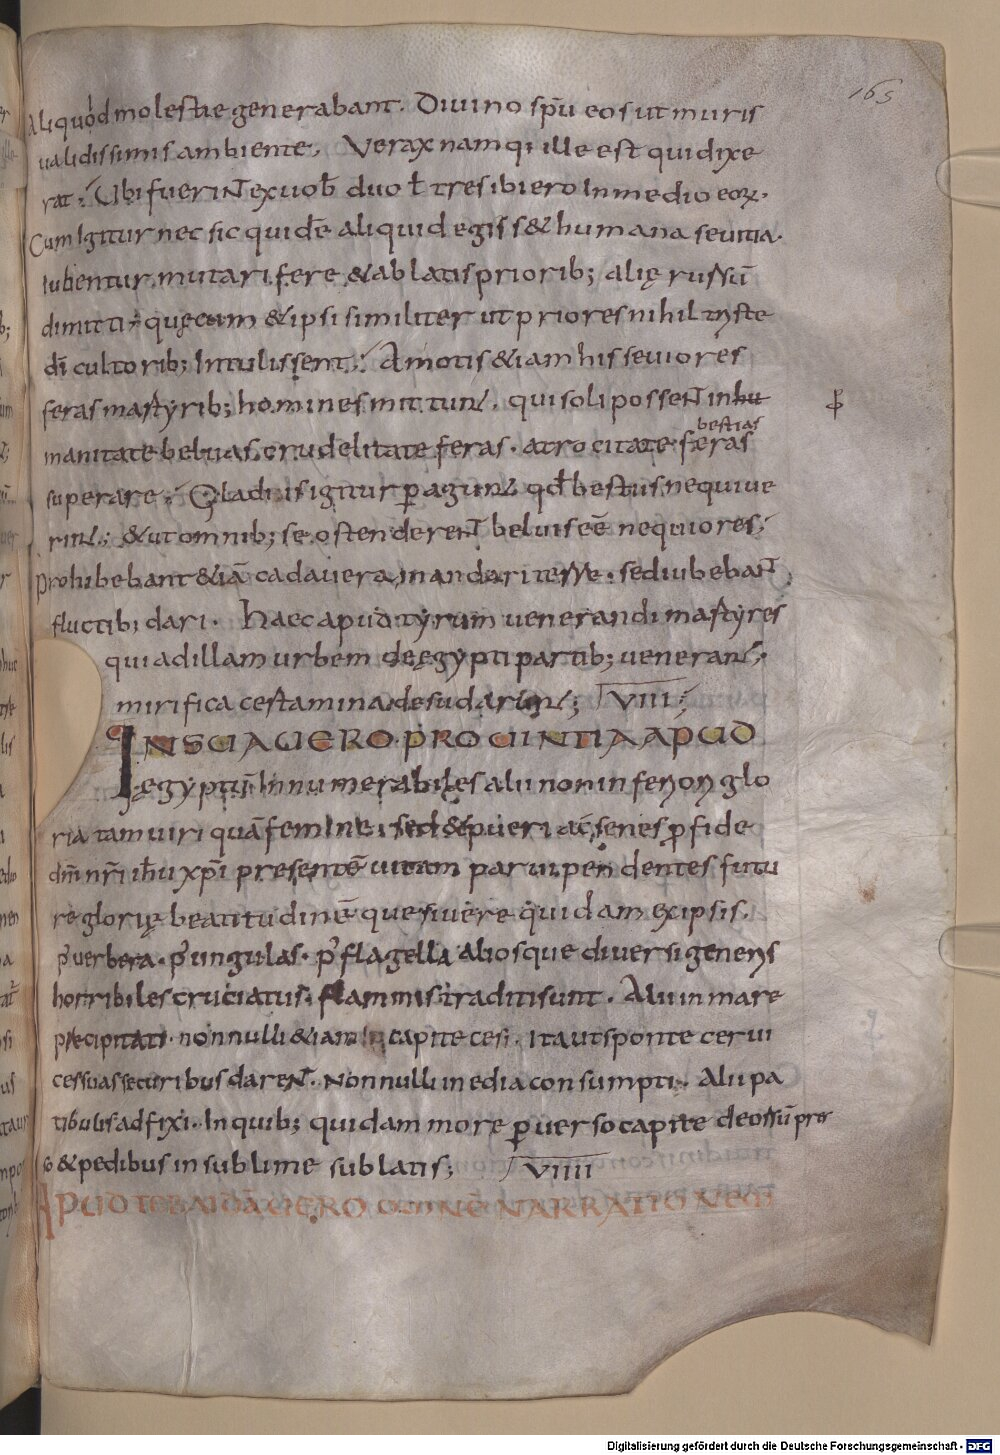 165
aliquod molestiae generabant. Divino sp̄u eos ut muris
validissimis ambiente; Verax namq; ille est qui dixe
rat; Ubi fuerint ex vob̄ duo ł tres ibi ero In medio eoꝝ.
Cum Igitur nec sic quidē aliquid egiss& humana sevitia.
Iubentur mutari fere & ablatis priorib; alię rursū
dimitti. quęcum & ipsi similiter ut priores nihil tyste
dī cultorib; Intulissent; Amotis &iam his seviores
feras martyrib; homines mittunt. qui soli possent inhu
ꝑ
bestias
manitate beluas. crudelitate feras. atrocitate feras
superare; Gladiis igitur ꝑagunt qđ bestiis nequive
rint; & ut omnib; se ostenderent beluis eē nequiores;
Prohibebant &iā cadavera mandari terre. sed iubebant
fluctib; dari. Haec apud tyrum venerandi martyres
qui ad illam urbem de ęgypti partib; venerant,
mirifica certamina desudarunt; VIII;
INSCIA VERO PROVINTIA APUD
ęgyptū Innumerabiles alii non inferiori glo
ria tam viri quā femine. sed & pueri ac senes ꝓ fide
dn̄i nr̄i ih̄u xp̄i presentē vitam parvipendentes futu
re glorię beatitudinē quesivere quidam ex ipsis.
p̄ verbera. p̄ ungulas. p̄ flagella aliosque diversi generis
horribiles cruciatus. flammis traditi sunt. Alii in mare
precipitati. nonnulli &iam In capite cesi. Ita ut sponte cervi
ces suas securibus darent. Nonnulli inedia consumpti. Alii pa
tibulis adfixi. In quib; quidam more ꝑverso capite deorsū pres
so & pedibus in sublime sublatis; VIIII
APUD TEBAIDĀ VERO OMNĒ NARRATIONEM
Digitalisierung gefördert durch die Deutsche Forschungsgemeinschaft - DFG